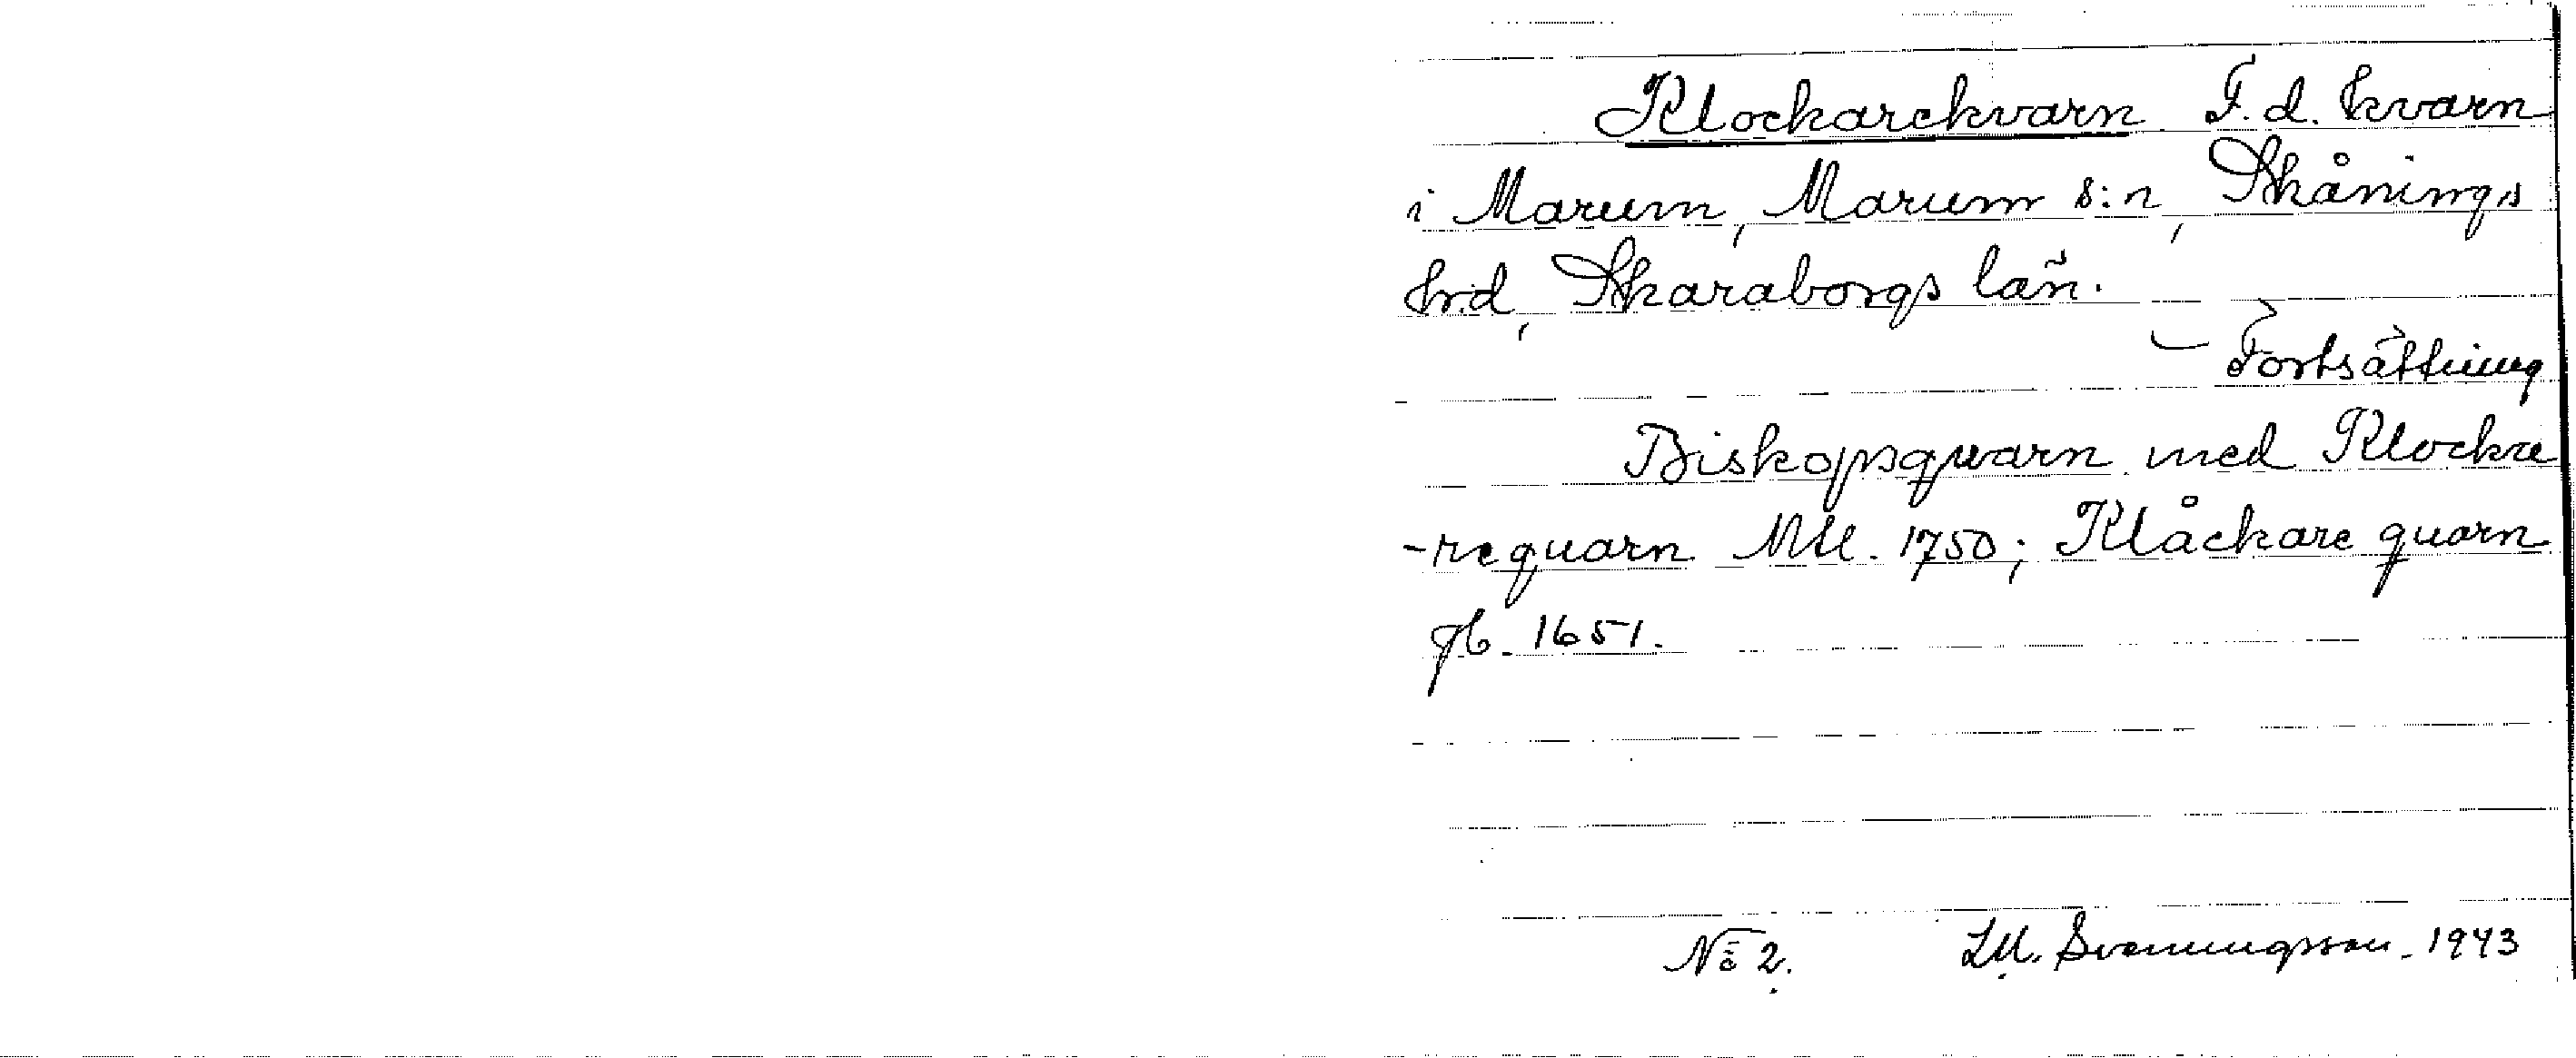 Klockarekvarn F.d. kvarn
i Marum, Marum s:n, Skånings
hrd, Skaraborgs län.
Fortsättning
Biskopsqvarn med Klocka
-requarn Mtl. 1750; Klåckare quarn
jb. 1651.
No 2. LM. Svenningsson. 1943